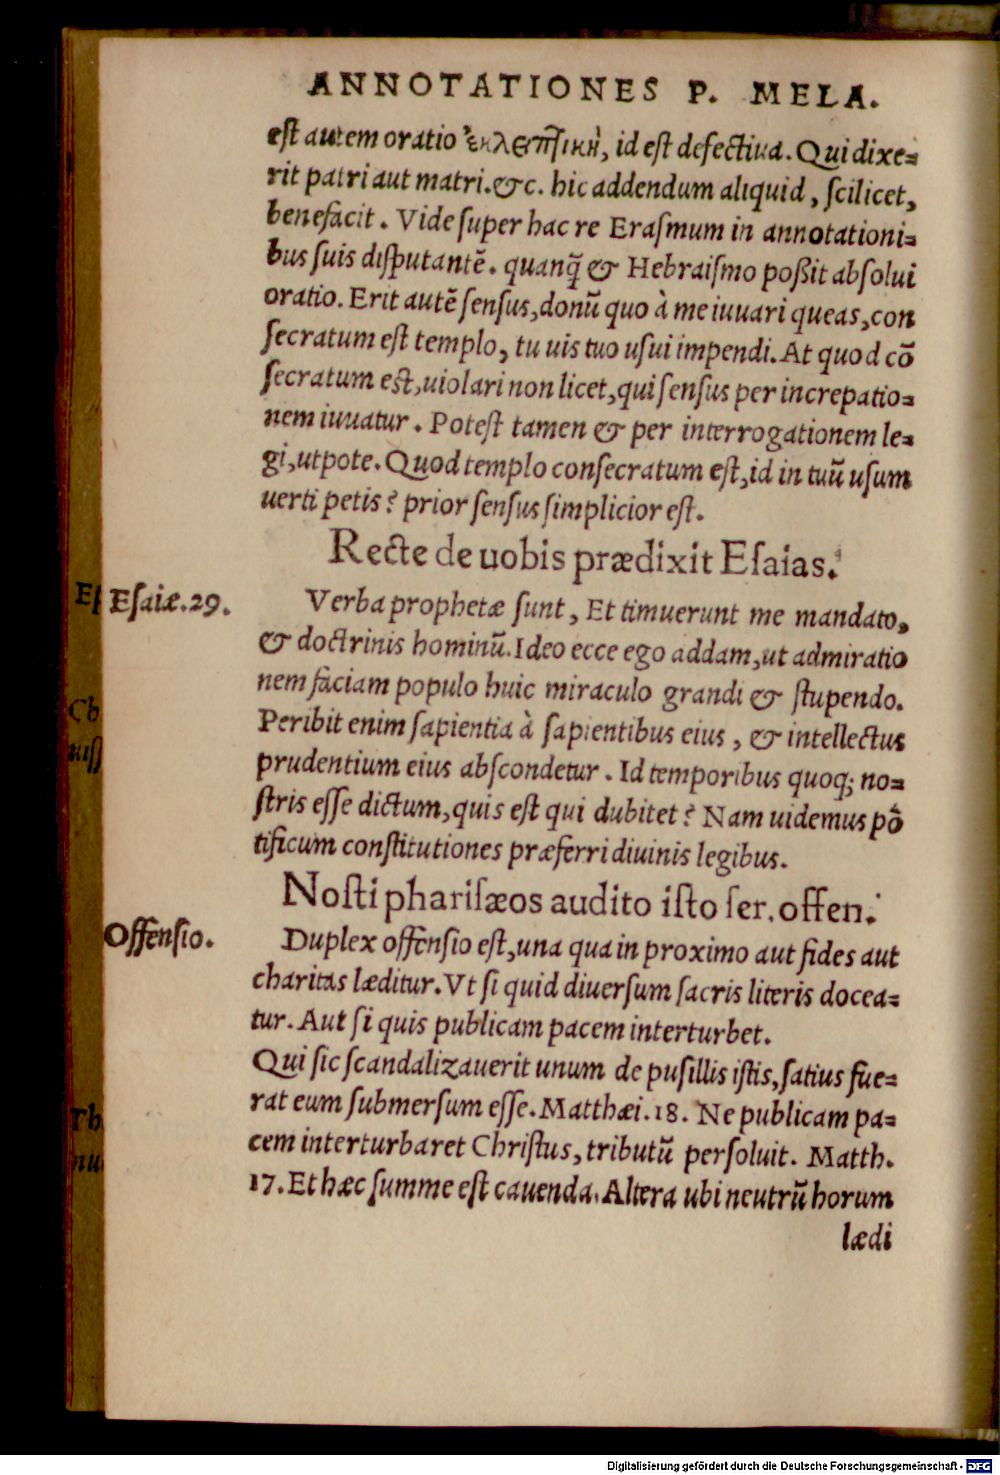 ANNOTATIONES P. MELA.
eſt autem oratio ἐκλειπτικὴ, id eſt defectiua. Qui dixe-
rit patri aut matri.&c. hic addendum aliquid, ſcilicet,
benefacit. Vide ſuper hac re Eraſmum in annotationi-
bus ſuis diſputantē. quanq̃ & Hebraiſmo poßit abſolui
oratio. Erit autē ſenſus, donū quo à me iuuari queas, con
ſecratum eſt templo, tu uis tuo uſui impendi. At quod cō
ſecratum eſt, uiolari non licet, qui ſenſus per increpatio-
nem iuuatur. Poteſt tamen & per interrogationem le-
gi, utpote. Quod templo conſecratum eſt, id in tuū uſum
uerti petis? prior ſenſus ſimplicior eſt.
Recte de uobis prædixit Eſaias.
Eſaiæ.29.
Verba prophetæ ſunt, Et timuerunt me mandato,
& doctrinis hominū. Ideo ecce ego addam, ut admiratio
nem faciam populo huic miraculo grandi & ſtupendo.
Peribit enim ſapientia à ſapientibus eius, & intellectus
prudentium eius abſcondetur. Id temporibus quoq; no-
ſtris eſſe dictum, quis eſt qui dubitet? Nam uidemus pō
tificum conſtitutiones præferri diuinis legibus.
Noſti phariſæos audito iſto ſer. offen.
Offenſio.
Duplex offenſio eſt, una qua in proximo aut fides aut
charitas læditur. Vt ſi quid diuerſum ſacris literis docea-
tur. Aut ſi quis publicam pacem interturbet.
Qui ſic ſcandalizauerit unum de puſillis iſtis, ſatius fue-
rat eum ſubmerſum eſſe. Matthæi.18. Ne publicam pa-
cem interturbaret Chriſtus, tributū perſoluit. Matth.
17. Et hæc ſumme eſt cauenda. Altera ubi neutrū horum
lædi
Digitalisierung gefördert durch die Deutsche Forschungsgemeinschaft - DFG